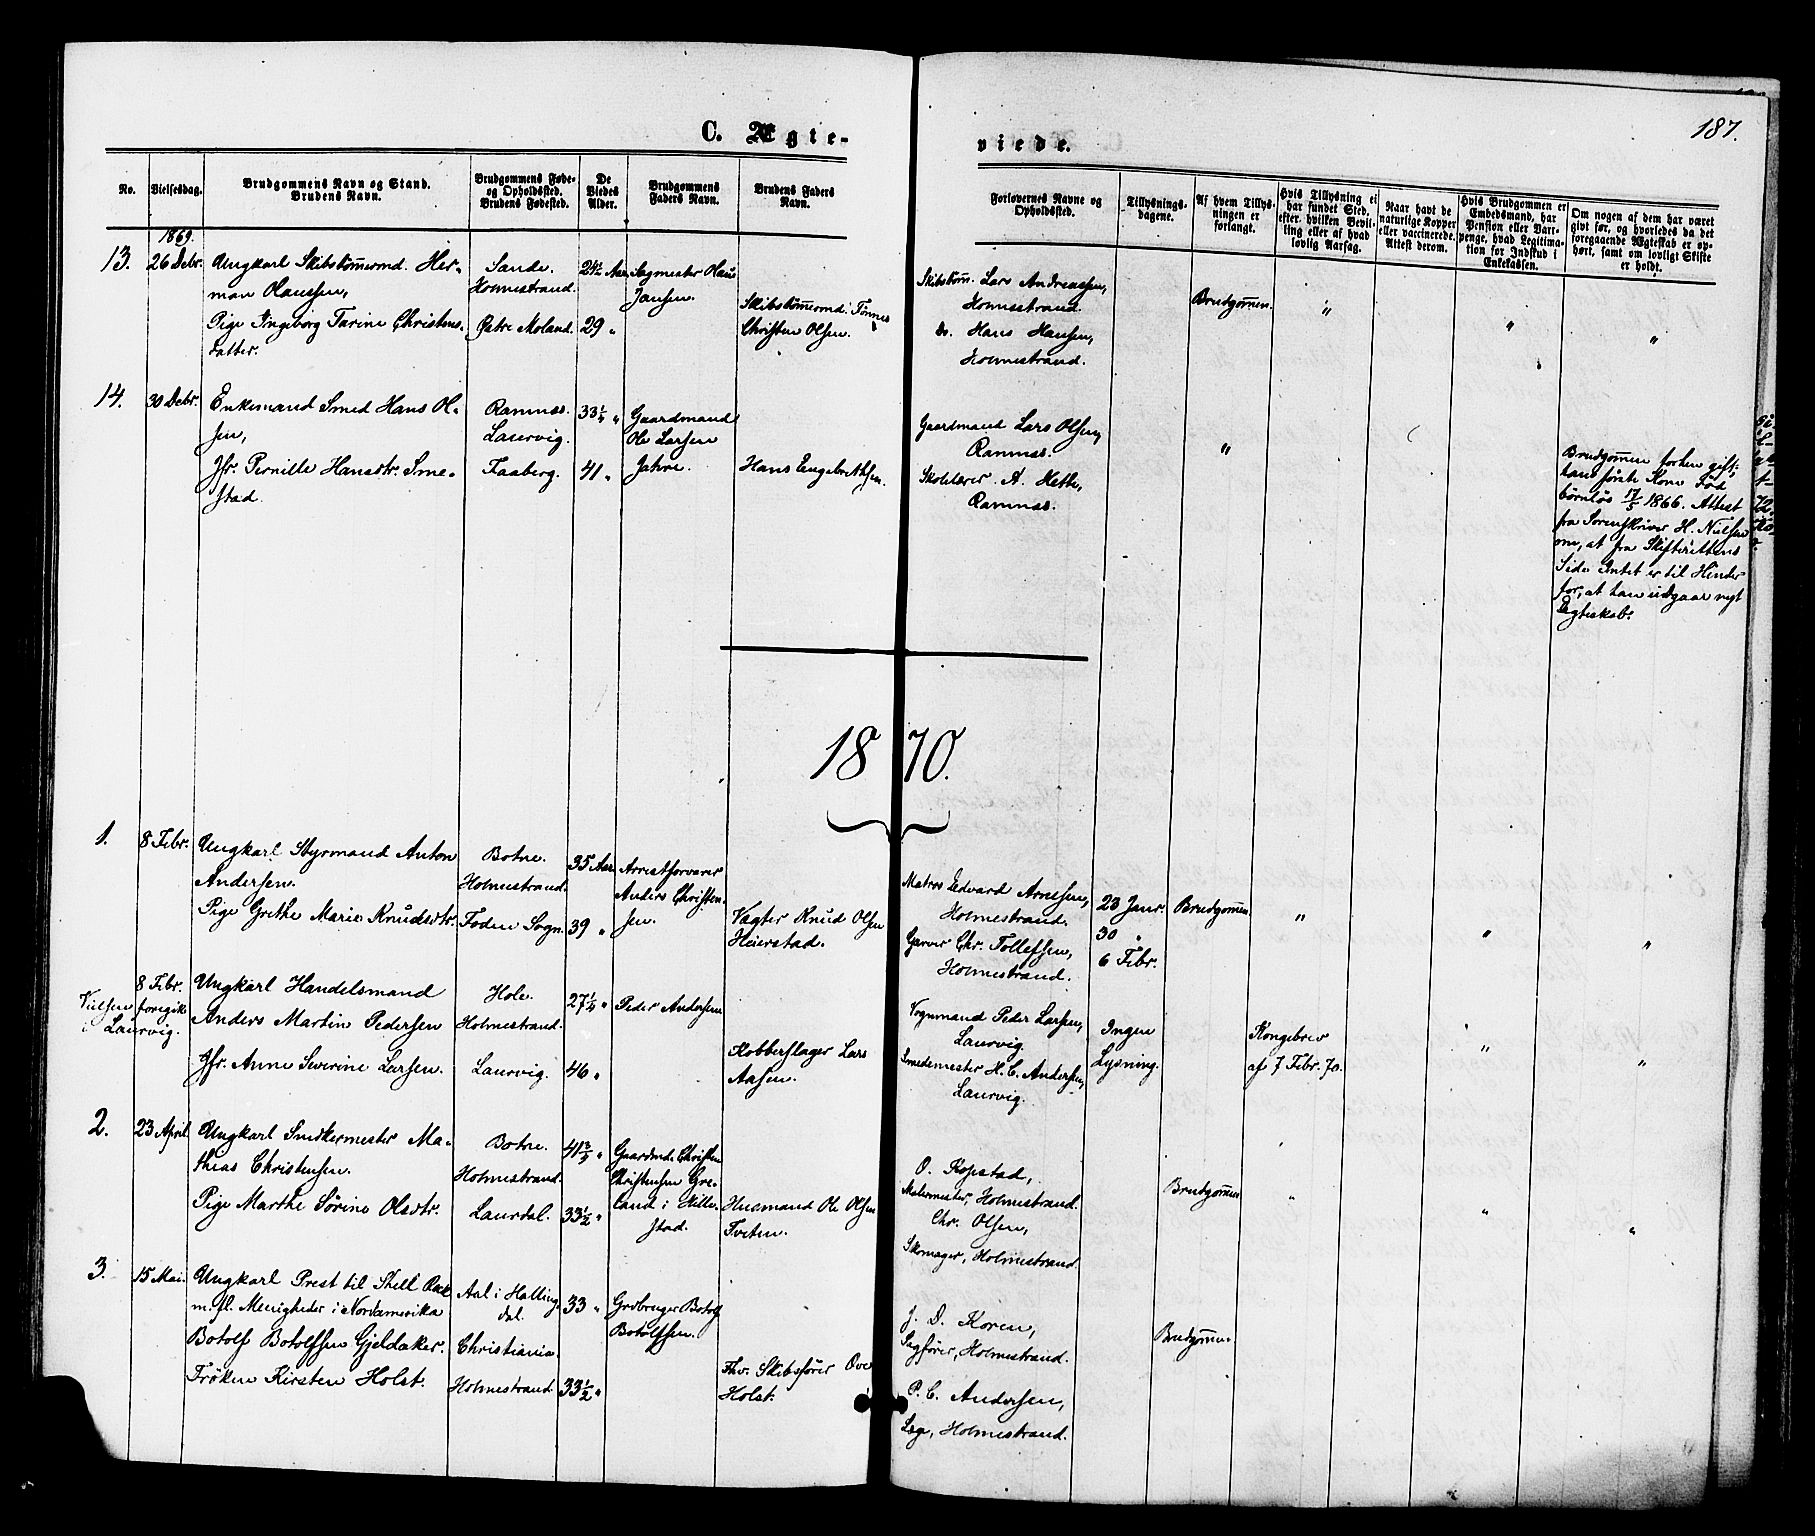 C. Ægte-
viede.
187.
No.
Vielsesdag.
Brudgommens Navn og Stand.
Brudens Navn.
Brudgommens Føde-
og Opholdssted.
Brudens Fødested.
De
Viedes
Alder.
Brudgommens
Faders Navn.
Brudens Faders
Navn.
Forlovernes Navne og
Opholdssted.
Tillysnings-
dagene.
Af hvem Tillys-
ningen er
forlangt.
Hvis Tillysning ei
har fundet Sted,
efter hvilken Bevil-
ling eller af hvad
lovlig Aarsag.
Naar havt de
naturlige Kopper
eller vaccinerede.
Attest derom.
Hvis Brudgommen er
Embedsmand, har
Pension eller Vart-
penge, hvad Legitima-
tion for Indskud i
Enkekassen.
Om nogen af dem har været
givt før, og hvorledes da det
foregaaende Ægteskab er op-
hørt, samt om lovligt Skifte
er holdt.
1869.
13.
26 Debr.
Ungkarl Skibstømmermd. Her-
man Olaussen,
Pige Ingeborg Tarine Christens-
datter.
Sande.
Holmestrand.
Østre Moland.
24½ Aar
29 "
Sagmester Olaus
Jansen.
Skibstømmermd. Tønnes
Christen Olsen.
Skibstømm. Lars Andreassen,
Holmestrand.
Do. Hans Hansen,
Holmestrand.
Brudgommen.
"
"
"
14.
30 Debr.
Enkemand Smed Hans Ol-
sen,
Jfr. Pernille Hansdtr. Sme-
stad.
Ramnæs.
Laurvig.
Faaberg.
33¼ "
41 "
Gaardmand
Ole Larsen
Jahre.
Hans Engebrethsen.
Gaardmand Lars Olsen,
Ramnæs.
Skolelærer A. Hette,
Ramnæs.
"
Brudgommen forhen gift;
hans første Kone død
børnløs 17/5 1866. Attest
fra Sorenskriver H. Nielsen
om, at fra Skifterettens
Side Intet er til Hinder
for, at han indgaar nyt
Ægteskab.
1870.
1.
8 Febr.
Ungkarl Styrmand Anton
Andersen.
Pige Grethe Marie Knudsdtr.
Botne.
Holmestrand.
Foden Sogn.
35 Aar
39 "
Arrestforvarer
Anders Christen-
sen.
Vægter Knud Olsen
Heierstad.
Matros Edvard Arnesen,
Holmestrand.
Garver Chr. Tollefsen,
Holmestrand.
23 Janr.
30 "
6 Febr.
Brudgommen.
"
"
"
8 Febr.
Vielsen foregik
i Laurvig.
Ungkarl Handelsmand
Anders Martin Pedersen
Jfr. Anne Severine Larsen.
Hole.
Holmestrand.
Laurvig.
27¼ "
46 "
Peder Andersen
Kobberslager Lars
Aasen.
Vognmand Peder Larsen,
Laurvig
Smedemester H. C. Andersen,
Laurvig.
Ingen
Lysning.
Kongebrev
af 7 Febr. 70.
"
"
"
2.
23 April
Ungkarl Snedkermester Ma-
thias Christensen.
Pige Marthe Sørine Olsdtr.
Botne.
Holmestrand.
Laurdal.
41¾ "
33½ "
Gaardmd. Christen
Christensen Gre-
land i Hille-
stad.
Husmand Ole Olsen
Tveten.
O. Kopstad,
Malermester, Holmestrand.
Chr. Olsen,
Skomager, Holmestrand.
Brudgommen
"
"
"
3.
15 Mai.
Ungkarl Prest til Skell
m. fl. Menigheder i Nordamerika
Botolf Botolfsen Gjeldaker.
Frøken Kirsten Holst.
Aal i Halling-
dal.
Christiania.
Holmestrand.
33 "
33½ "
Grdbruger Botolf
Botolfsen.
Fhv. Skibsfører Ove
Holst.
J. D. Koren,
Sagfører, Holmestrand.
P. C. Andersen,
Læge, Holmestrand.
Brudgommen.